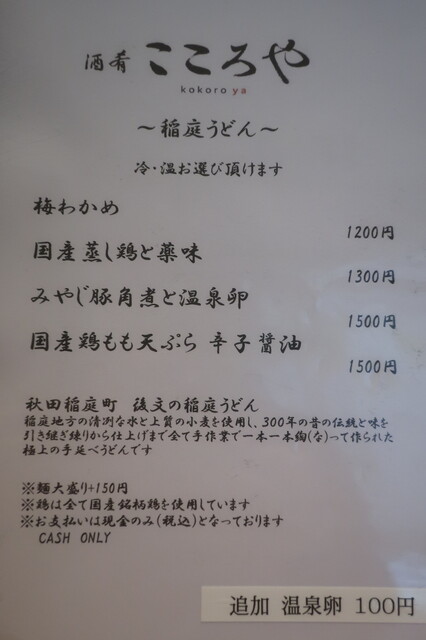 酒肴 こころや
kokoro ya
～稲庭うどん～
冷・温お選び頂けます
梅わかめ
1200円
国産蒸し鶏と薬味
1300円
みやじ豚角煮と温泉卵
1500円
国産鶏もも天ぷら 辛子醤油
1500円
秋田稲庭町 後文の稲庭うどん
稲庭地方の清冽な水と上質の小麦を使用し、300年の昔の伝統と味を
引き継ぎ練りから仕上げまで全て手作業で一本一本綯(な)って作られた
極上の手延べうどんです
※麺大盛り+150円
※鶏は全て国産銘柄鶏を使用しています
※お支払いは現金のみ(税込)となっております
CASH ONLY
追加 温泉卵 100円